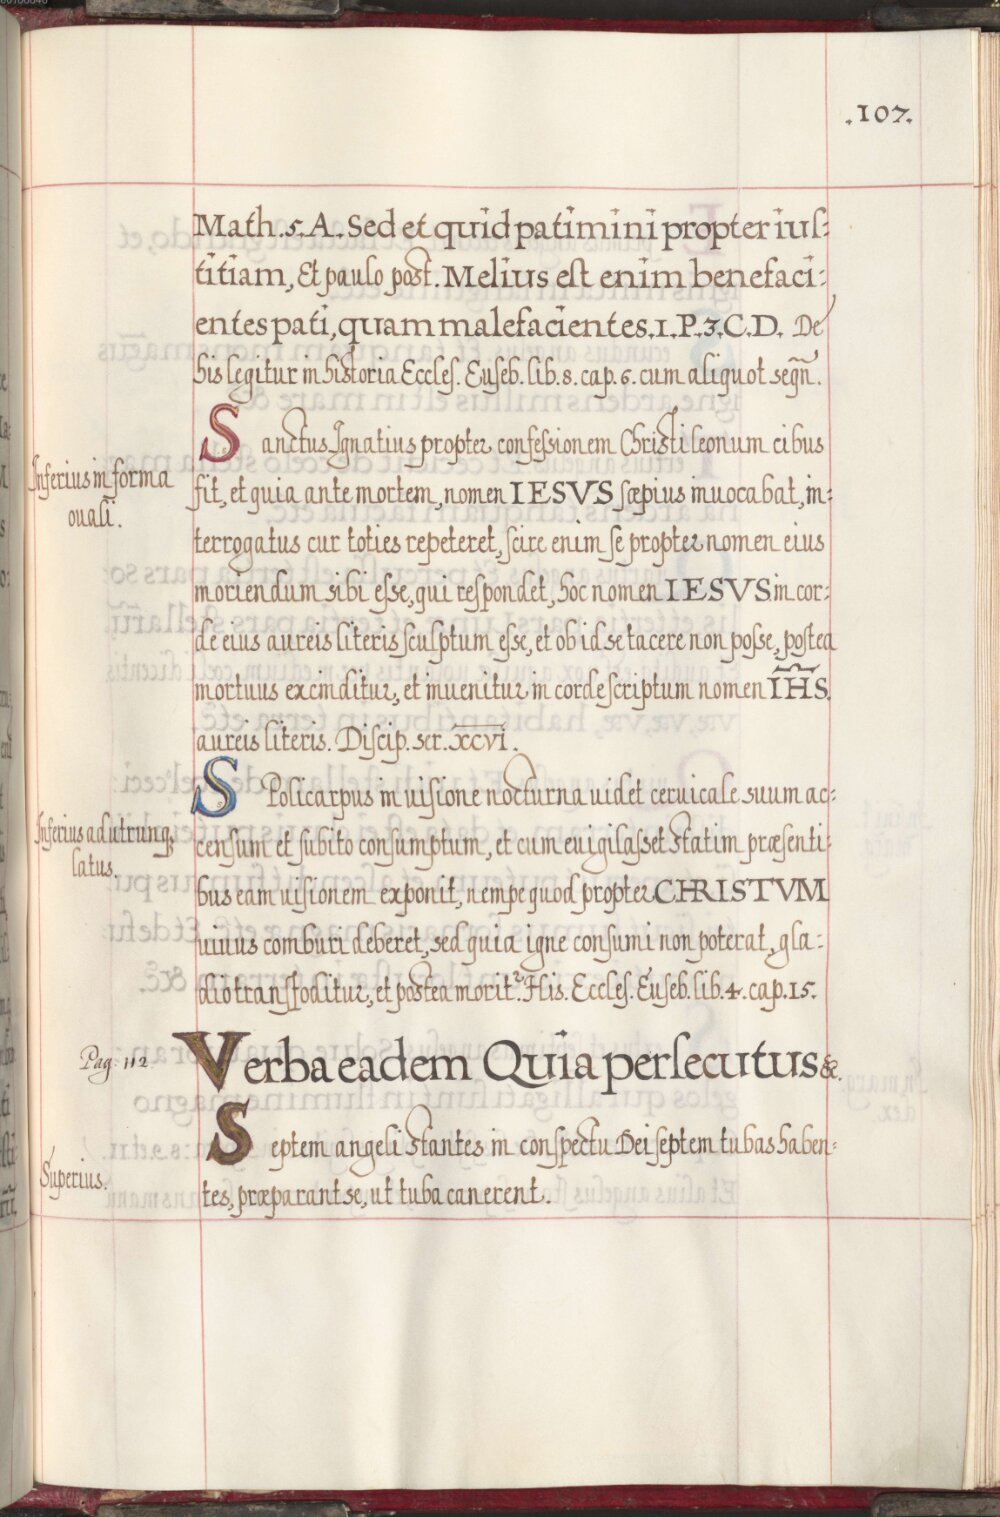 .107.
Math.5.A. Sed et quid patimini propter ius-
titiam, Et paulo post. Melius est enim benefaci-
entes pati, quam malefacientes.1.P.3.C.D. De
his legitur in historia Eccles. Euseb. lib.8. cap.6. cum aliquot seqñ.
Sanctus Ignatius propter confessionem Christi leonum cibus
Inferius in forma
ouali.
fit, et quia ante mortem, nomen IESVS sæpius inuocabat, in-
terrogatus cur toties repeteret, scire enim se propter nomen eius
moriendum sibi esse, qui respondet, hoc nomen IESVS in cor-
de eius aureis literis sculptum esse, et ob id se tacere non posse, postea
mortuus exscinditur, et inuenitur in corde scriptum nomen IHS
aureis literis. Discip. ser. XCVI.
S Policarpus in uisione nocturna uidet ceruicale suum ac-
Inferius ad utrunq;
latus.
censum et subito consumptum, et cum euigilasset statim præsenti-
bus eam uisionem exponit, nempe quod propter CHRISTVM
uiuus comburi deberet, sed quia igne consumi non poterat, gla-
dio transfoditur, et postea morit². His. Eccles. Euseb. lib.4. cap.15.
Pag. 112
Verba eadem Quia persecutus &c.
Septem angeli stantes in conspectu Dei septem tubas haben-
Superius.
tes, præparant se, ut tuba canerent.